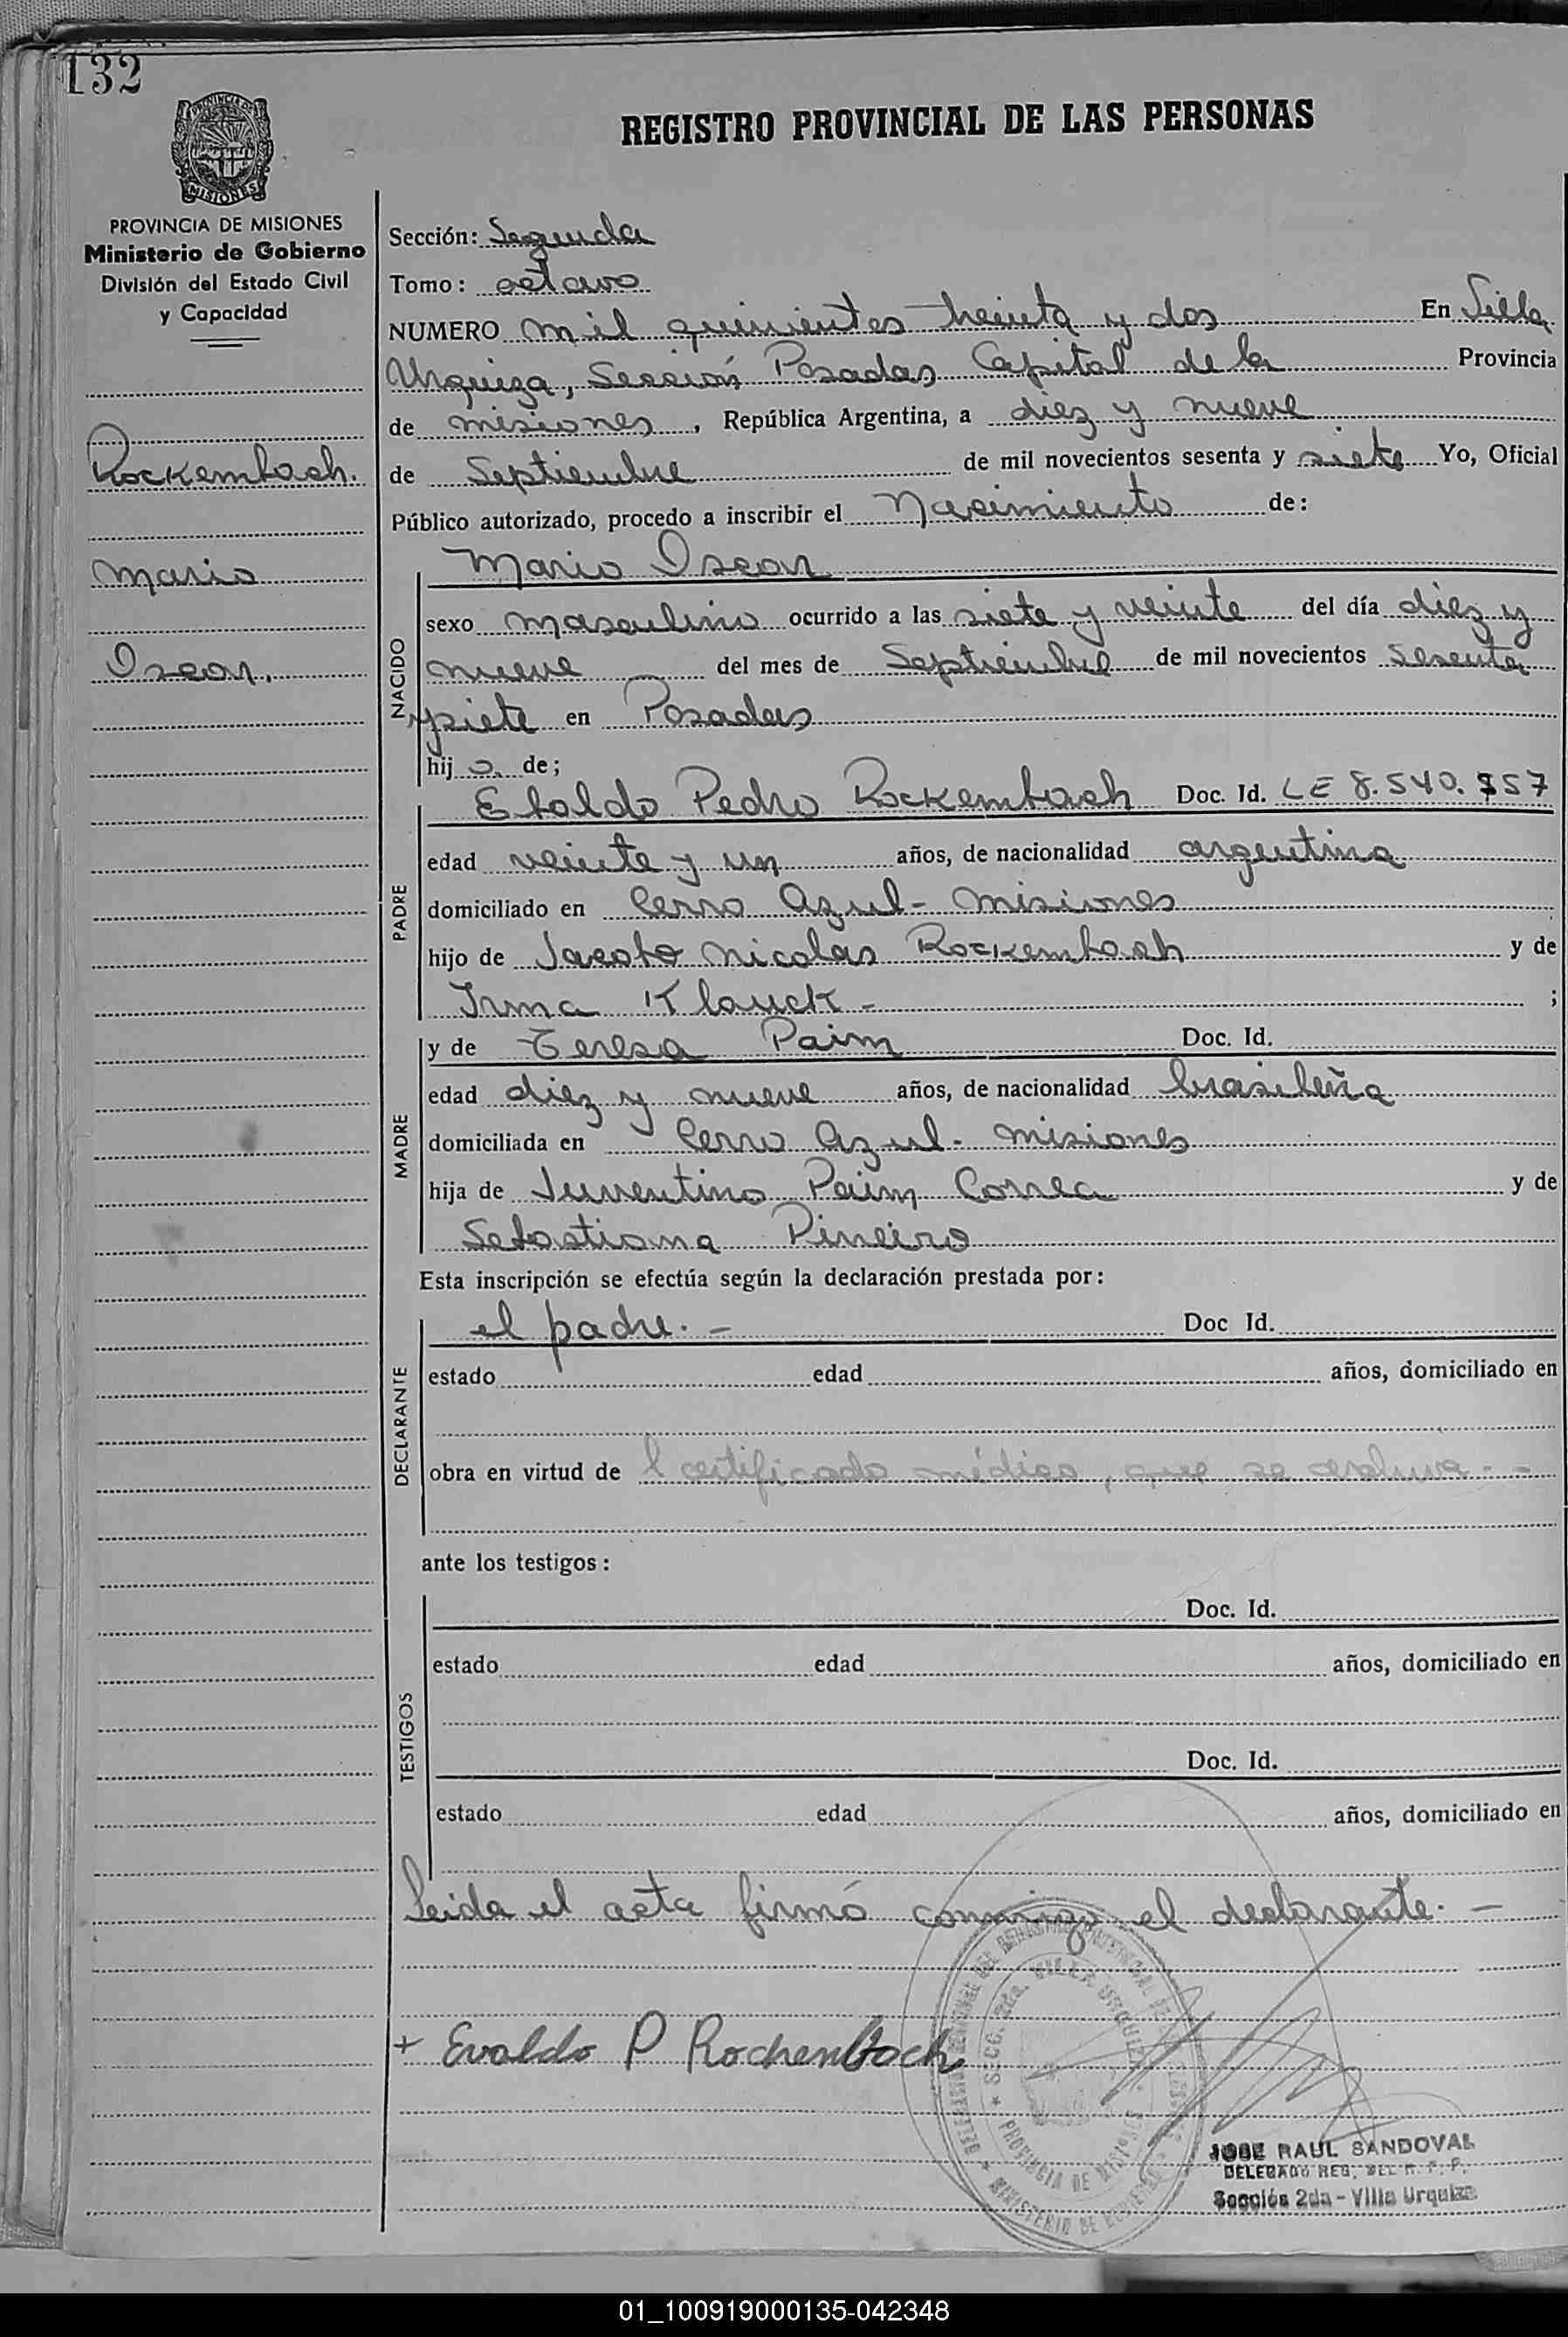 132
PROVINCIA DE MISIONES
MISIONES
PROVINCIA DE MISIONES
Ministerio de Gobierno
División del Estado Civil
y Capacidad
Rockembach.
Mario
Oscar.
REGISTRO PROVINCIAL DE LAS PERSONAS
Sección: Segunda
Tomo: octavo
NUMERO mil quinientos treinta y dos En Villa
Urquiza, Sección Posadas Capital de la Provincia
de misiones, República Argentina, a diez y nueve
de Septiembre de mil novecientos sesenta y siete Yo, Oficial
Público autorizado, procedo a inscribir el Nacimiento de:
NACIDO
Mario Oscar
sexo masculino ocurrido a las siete y veinte del día diez y
nueve del mes de Septiembre de mil novecientos sesenta
y siete en Posadas
hijo de;
PADRE
Ebaldo Pedro Rockembach Doc. Id. LE 8.540.757
edad veinte y un años, de nacionalidad argentina
domiciliado en Cerro Azul - Misiones
hijo de Jacobo Nicolas Rockembach y de
Irma Klauck - ;
MADRE
y de Teresa Paim Doc. Id.
edad diez y nueve años, de nacionalidad brasileña
domiciliada en Cerro Azul - misiones
hija de Juventino Paim Correa y de
Sebastiana Pineiro
Esta inscripción se efectúa según la declaración prestada por:
DECLARANTE
el padre. - Doc Id.
estado edad años, domiciliado en
obra en virtud de l certificado médico, que se archiva. -
ante los testigos:
TESTIGOS
Doc. Id.
estado edad años, domiciliado en
Doc. Id.
estado edad años, domiciliado en
Leida el acta firmó conmigo el declarante. -
+ Evaldo P Rochenbach
SECC. 2da. VILLA URQUIZA
PROVINCIA DE MISIONES
MINISTERIO DE GOBIERNO
JOSE RAUL SANDOVAL
DELEGADO REG. DEL R. P. P.
Sección 2da - Villa Urquiza
01_100919000135-042348